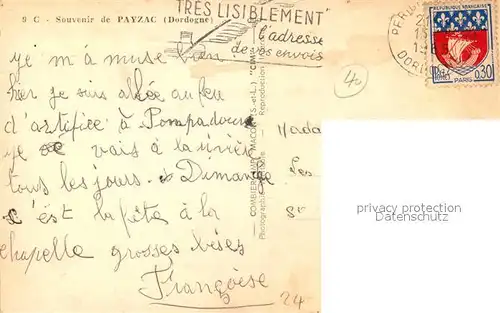 9 C - Souvenir de PAYZAC (Dordogne)
TRES LISIBLEMENT"
l'adresse
de vos envois
PERIG
DOR
REPUBLIQUE FRANÇAISE
POSTES
0,30
PARIS
4
ye m'a muse bien
hier je suis allée au feu
d'artifice à Pompadour
ye vais à la rivière
tous les jours. Dimange
c'est la fête à la
chapelle grosses bises
Françoise
24
COMBIER IMP. MACON (S.-et-L.) "CIM"
Reproduction
Mada
Les
privacy protection
Datenschutz